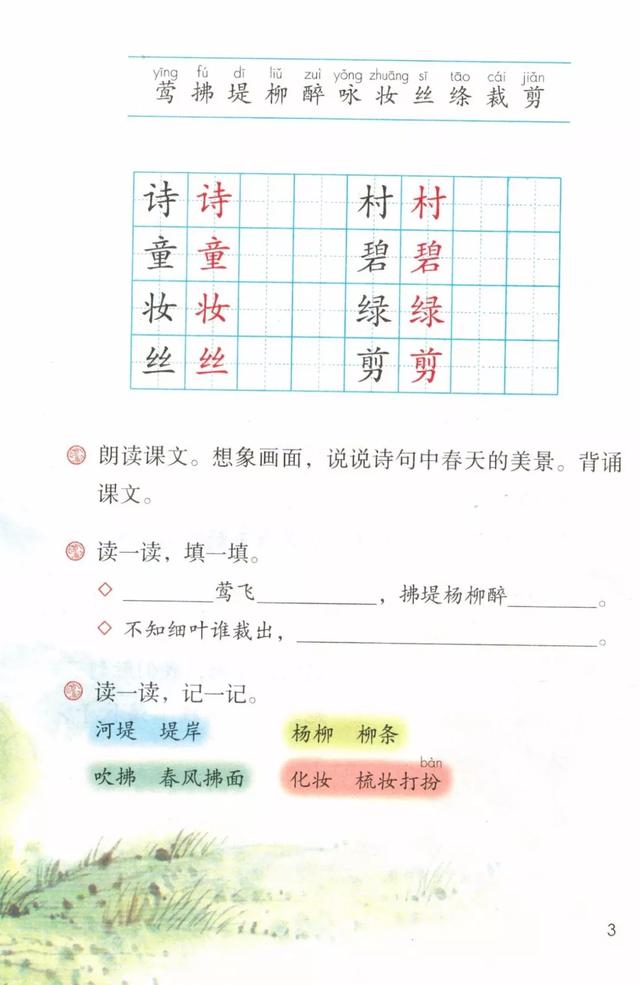 yīng fú dī liǔ zuì yǒng zhuāng sī tāo cái jiǎn
莺 拂 堤 柳 醉 咏 妆 丝 绦 裁 剪
诗 诗 村 村
童 童 碧 碧
妆 妆 绿 绿
丝 丝 剪 剪
朗读课文。想象画面，说说诗句中春天的美景。背诵
课文。
读一读，填一填。
◇ ________莺飞__________，拂堤杨柳醉________。
◇ 不知细叶谁裁出，__________________________。
读一读，记一记。
河堤 堤岸 杨柳 柳条
bàn
吹拂 春风拂面 化妆 梳妆打扮
3